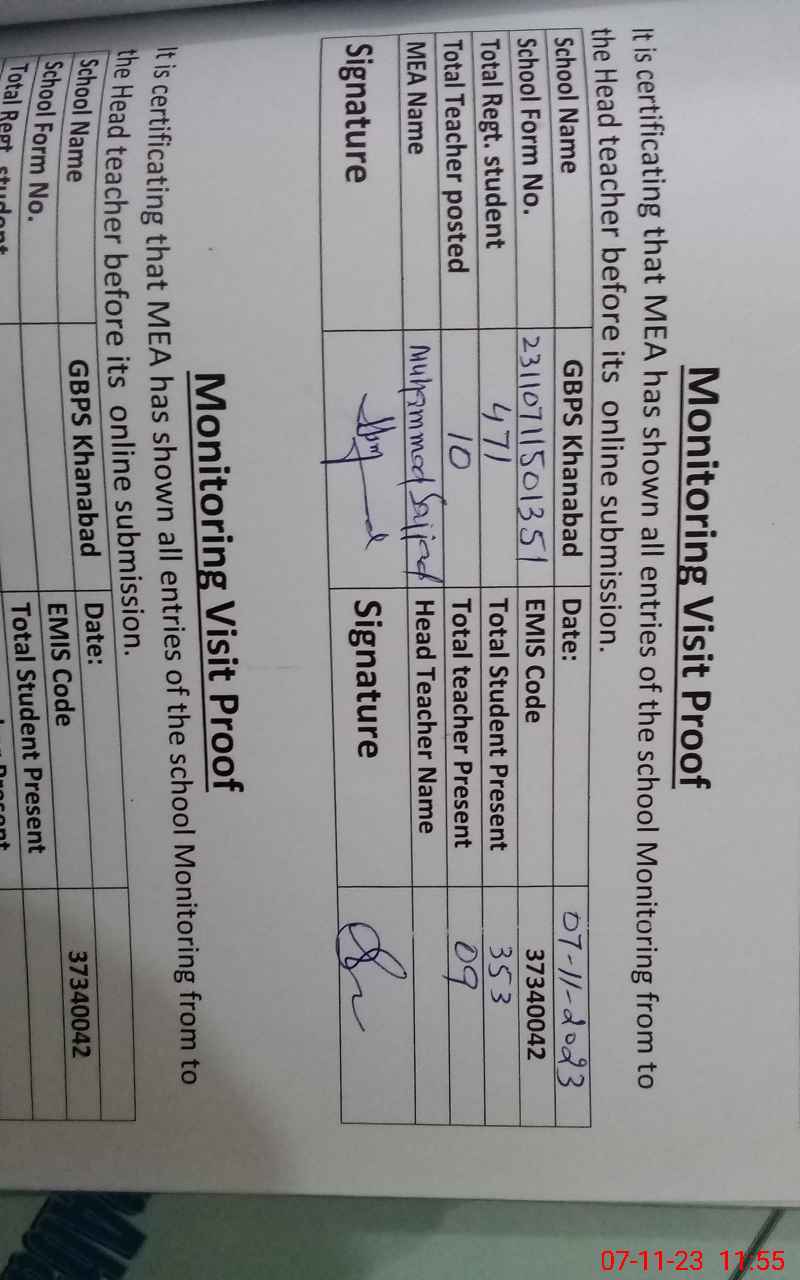 Monitoring Visit Proof
It is certificating that MEA has shown all entries of the school Monitoring from to
the Head teacher before its online submission.
School Name GBPS Khanabad Date: 07-11-2023
School Form No. 2311071150 1351 EMIS Code 37340042
Total Regt. student 471 Total Student Present 353
Total Teacher posted 10 Total teacher Present 09
MEA Name Muhammad Sajjad Head Teacher Name
Signature Signature
Monitoring Visit Proof
It is certificating that MEA has shown all entries of the school Monitoring from to
the Head teacher before its online submission.
School Name GBPS Khanabad Date:
School Form No. EMIS Code 37340042
Total Regt. student Total Student Present
07-11-23 11:55